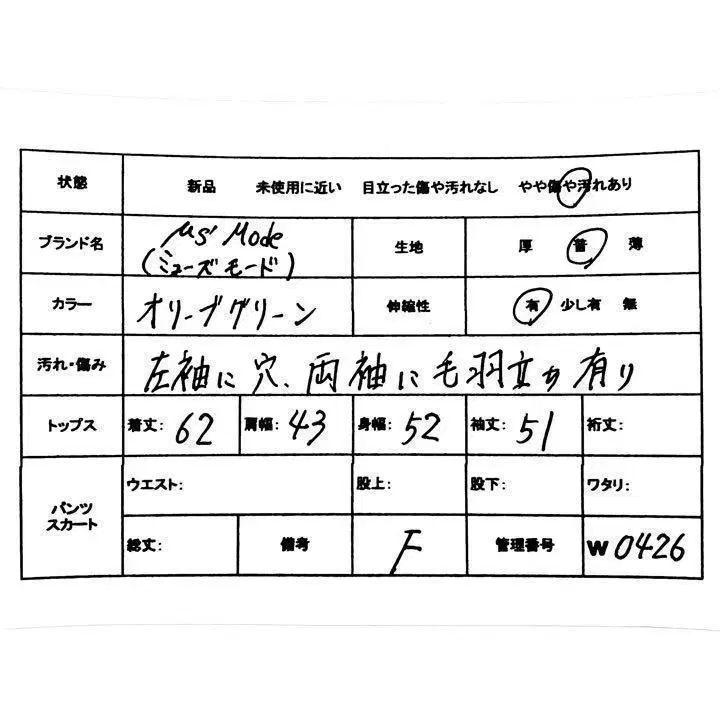 状態 新品 未使用に近い 目立った傷や汚れなし やや傷や汚れあり
ブランド名 μs' Mode 生地 厚 普 薄
(ミューズモード)
カラー オリーブグリーン 伸縮性 有 少し有 無
汚れ・傷み 左袖に穴、両袖に毛羽立ち有り
トップス 着丈: 62 肩幅: 43 身幅: 52 袖丈: 51 裄丈:
パンツ スカート ウエスト: 股上: 股下: ワタリ:
総丈: 備考 F 管理番号 W 0426